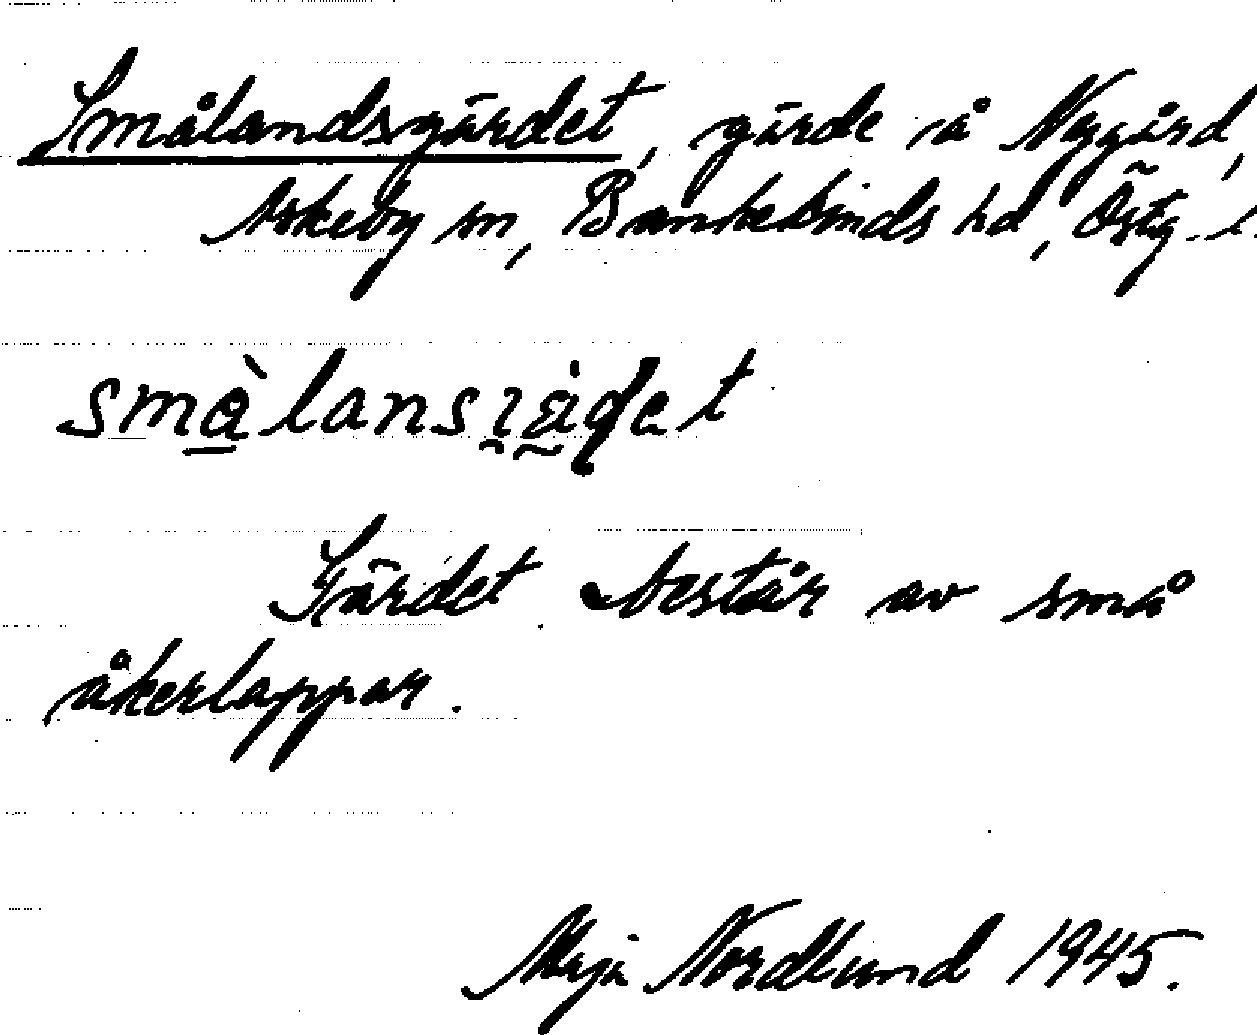 Smålandsgärdet, gärde å Nygård,
Askeby sn, Bankekinds hd, Östg. l.
Gärdet består av små
åkerlappar.
Nordlund 1945.